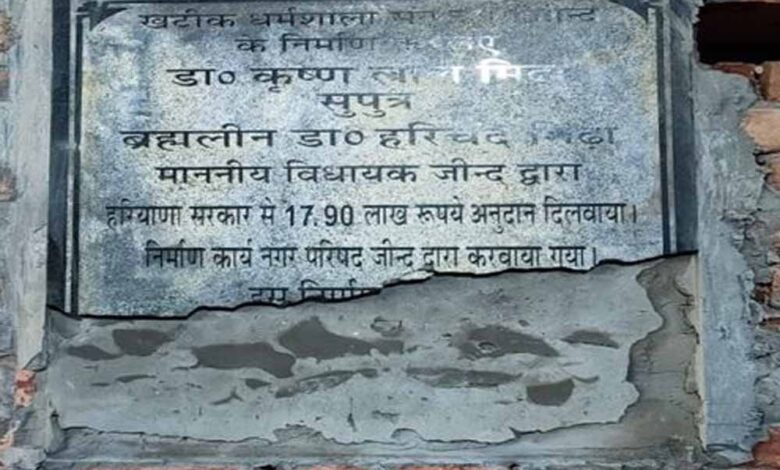 खटीक धर्मशाला
के निर्माण
डा० कृष्ण लाल मिढा
सुपुत्र
ब्रह्मलीन डा० हरिचंद मिढ़ा
माननीय विधायक जीन्द द्वारा
हरियाणा सरकार से 17.90 लाख रूपये अनुदान दिलवाया।
निर्माण कार्य नगर परिषद जीन्द द्वारा करवाया गया।
इस